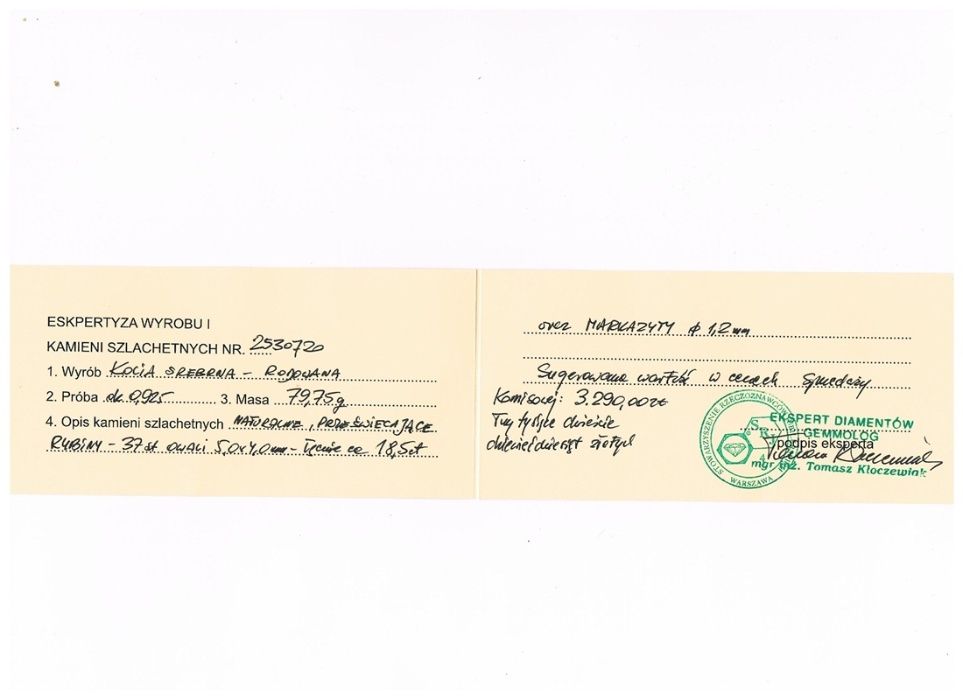 ESKPERTYZA WYROBU I
KAMIENI SZLACHETNYCH NR. 2530720
1. Wyrób KOLIA SREBRNA - RODOWANA
2. Próba ok. 0,925 3. Masa 79,75g
4. Opis kamieni szlachetnych NATURALNE, PRZEŚWIECAJĄCE
RUBINY - 37 szt owali 5,0x4,0mm - łącznie ca 18,5ct
oraz MARKAZYTY ϕ 1,2mm
Sugerowana wartość w cenach sprzedaży
Komisowej: 3.290,00zł
Trzy tysiące dwieście
dziewięćdziesiąt złotych
STOWARZYSZENIE RZECZOZNAWCÓW
WARSZAWA
EKSPERT DIAMENTÓW
GEMMOLOG
podpis eksperta
mgr inż. Tomasz Kłoczewiak